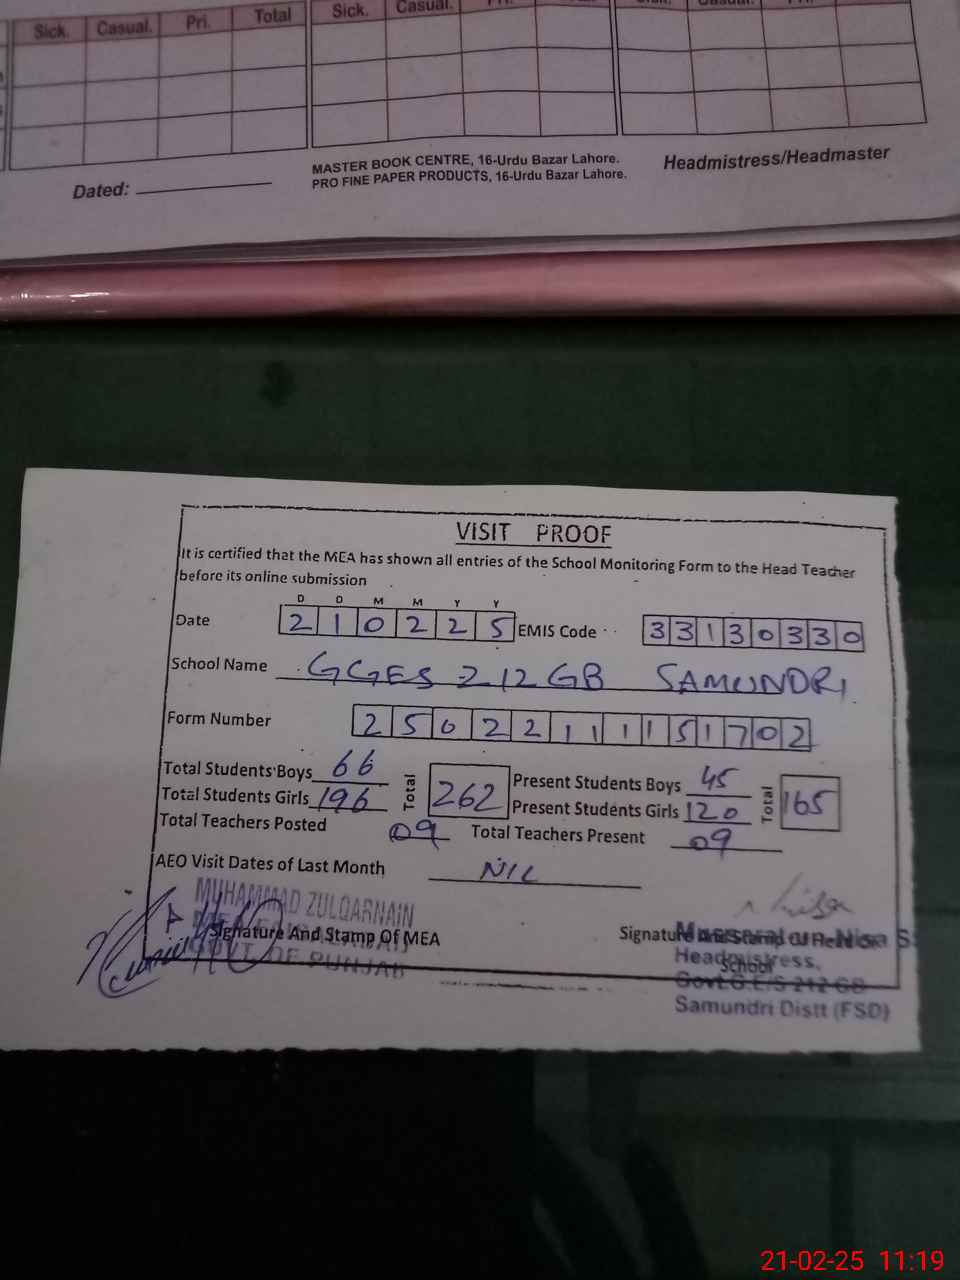 Sick. Casual. Pri. Total Sick. Casual.
Dated:
MASTER BOOK CENTRE, 16-Urdu Bazar Lahore.
PRO FINE PAPER PRODUCTS, 16-Urdu Bazar Lahore.
Headmistress/Headmaster
VISIT PROOF
It is certified that the MEA has shown all entries of the School Monitoring Form to the Head Teacher
before its online submission
D D M M Y Y
Date 210225 EMIS Code 33130330
School Name GGES 212 GB SAMUNDRI
Form Number 250221 1151702
Total Students Boys 66 Total 262 Present Students Boys 45 Total 165
Total Students Girls 196 Present Students Girls 120
Total Teachers Posted 09 Total Teachers Present 09
AEO Visit Dates of Last Month NIL
MUHAMMAD ZULQARNAIN
Signature And Stamp Of MEA
GOVT OF PUNJAB
Signature And Stamp Of Head
School
Headmistress.
Govt.G.E/S 212 GB
Samundri Distt (FSD)
21-02-25 11:19